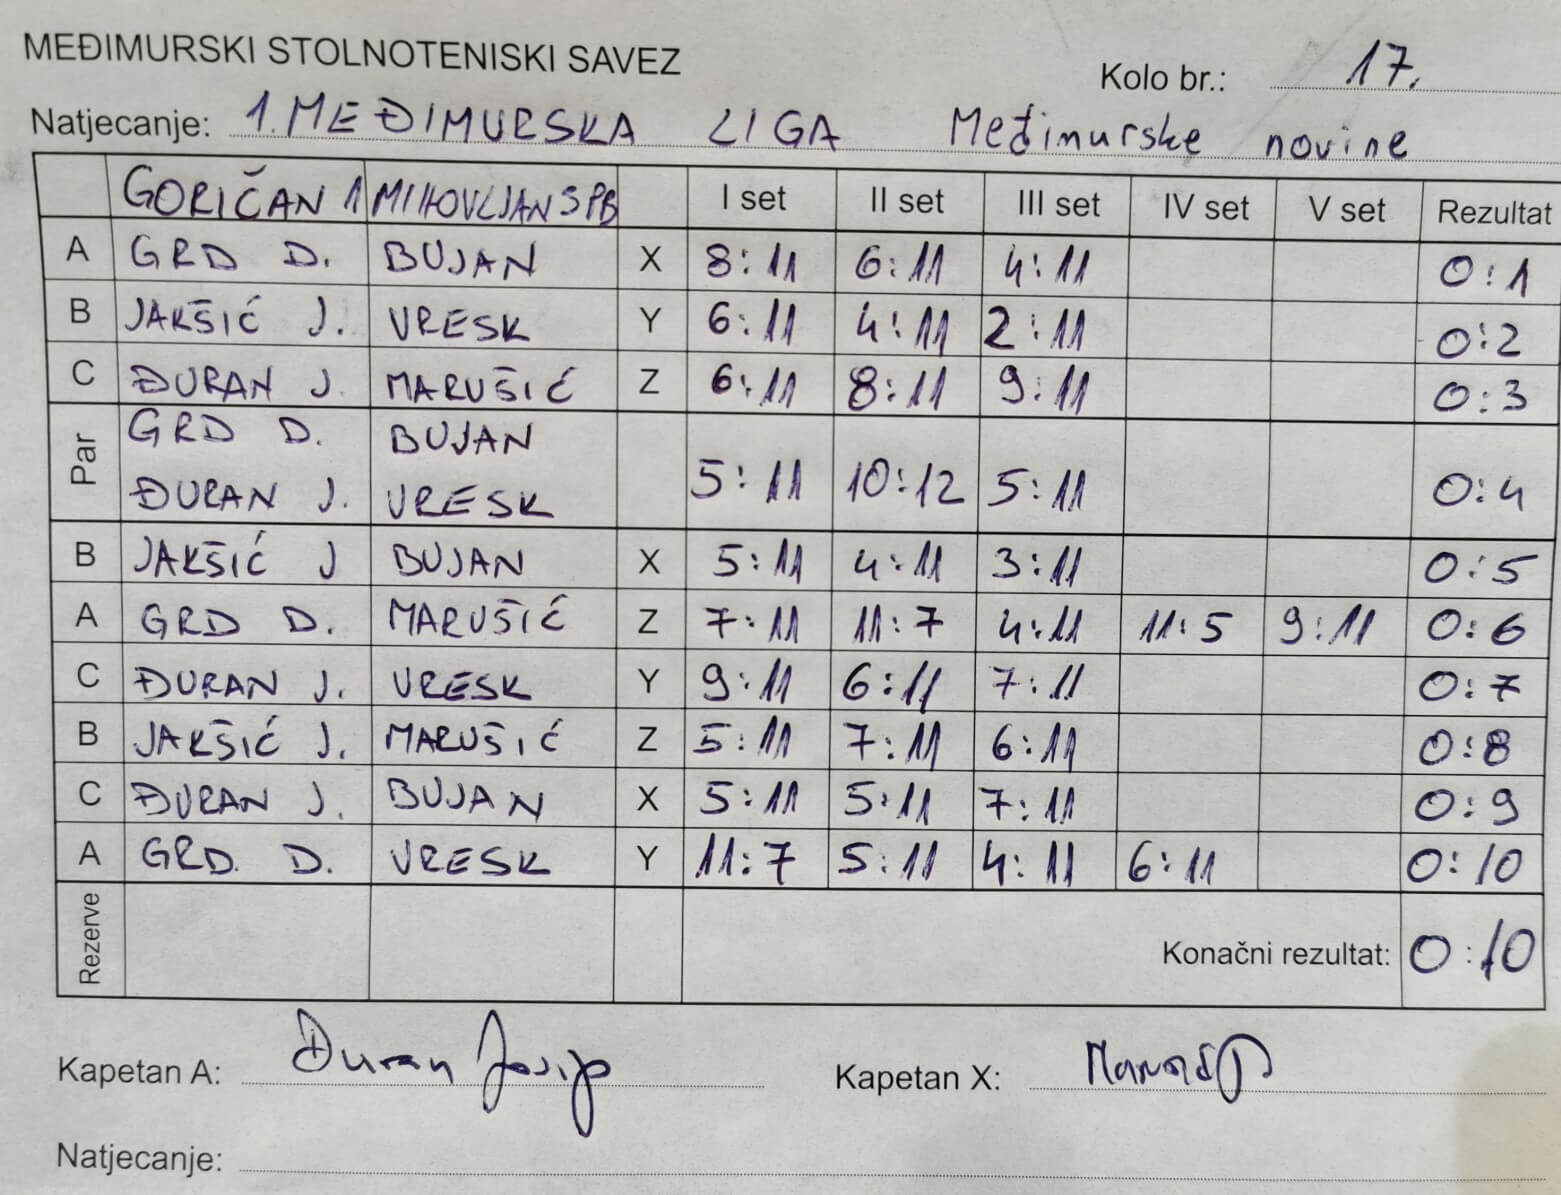 MEĐIMURSKI STOLNOTENISKI SAVEZ
Kolo br.: 17.
Natjecanje: 1. MEĐIMURSKA LIGA Međimurske novine
GORIČAN 1 MIHOVLJAN SPB I set II set III set IV set V set Rezultat
A GRD D. BUJAN X 8:11 6:11 4:11 0:1
B JAKŠIĆ J. VRESK Y 6:11 4:11 2:11 0:2
C ĐURAN J. MARUŠIĆ Z 6:11 8:11 9:11 0:3
Par GRD D. BUJAN
ĐURAN J. VRESK 5:11 10:12 5:11 0:4
B JAKŠIĆ J BUJAN X 5:11 4:11 3:11 0:5
A GRD D. MARUŠIĆ Z 7:11 11:7 4:11 11:5 9:11 0:6
C ĐURAN J. VRESK Y 9:11 6:11 7:11 0:7
B JAKŠIĆ J. MARUŠIĆ Z 5:11 7:11 6:11 0:8
C ĐURAN J. BUJAN X 5:11 5:11 7:11 0:9
A GRD. D. VRESK Y 11:7 5:11 4:11 6:11 0:10
Rezerve Konačni rezultat: 0:10
Kapetan A: Đuran Josip
Kapetan X:
Natjecanje: